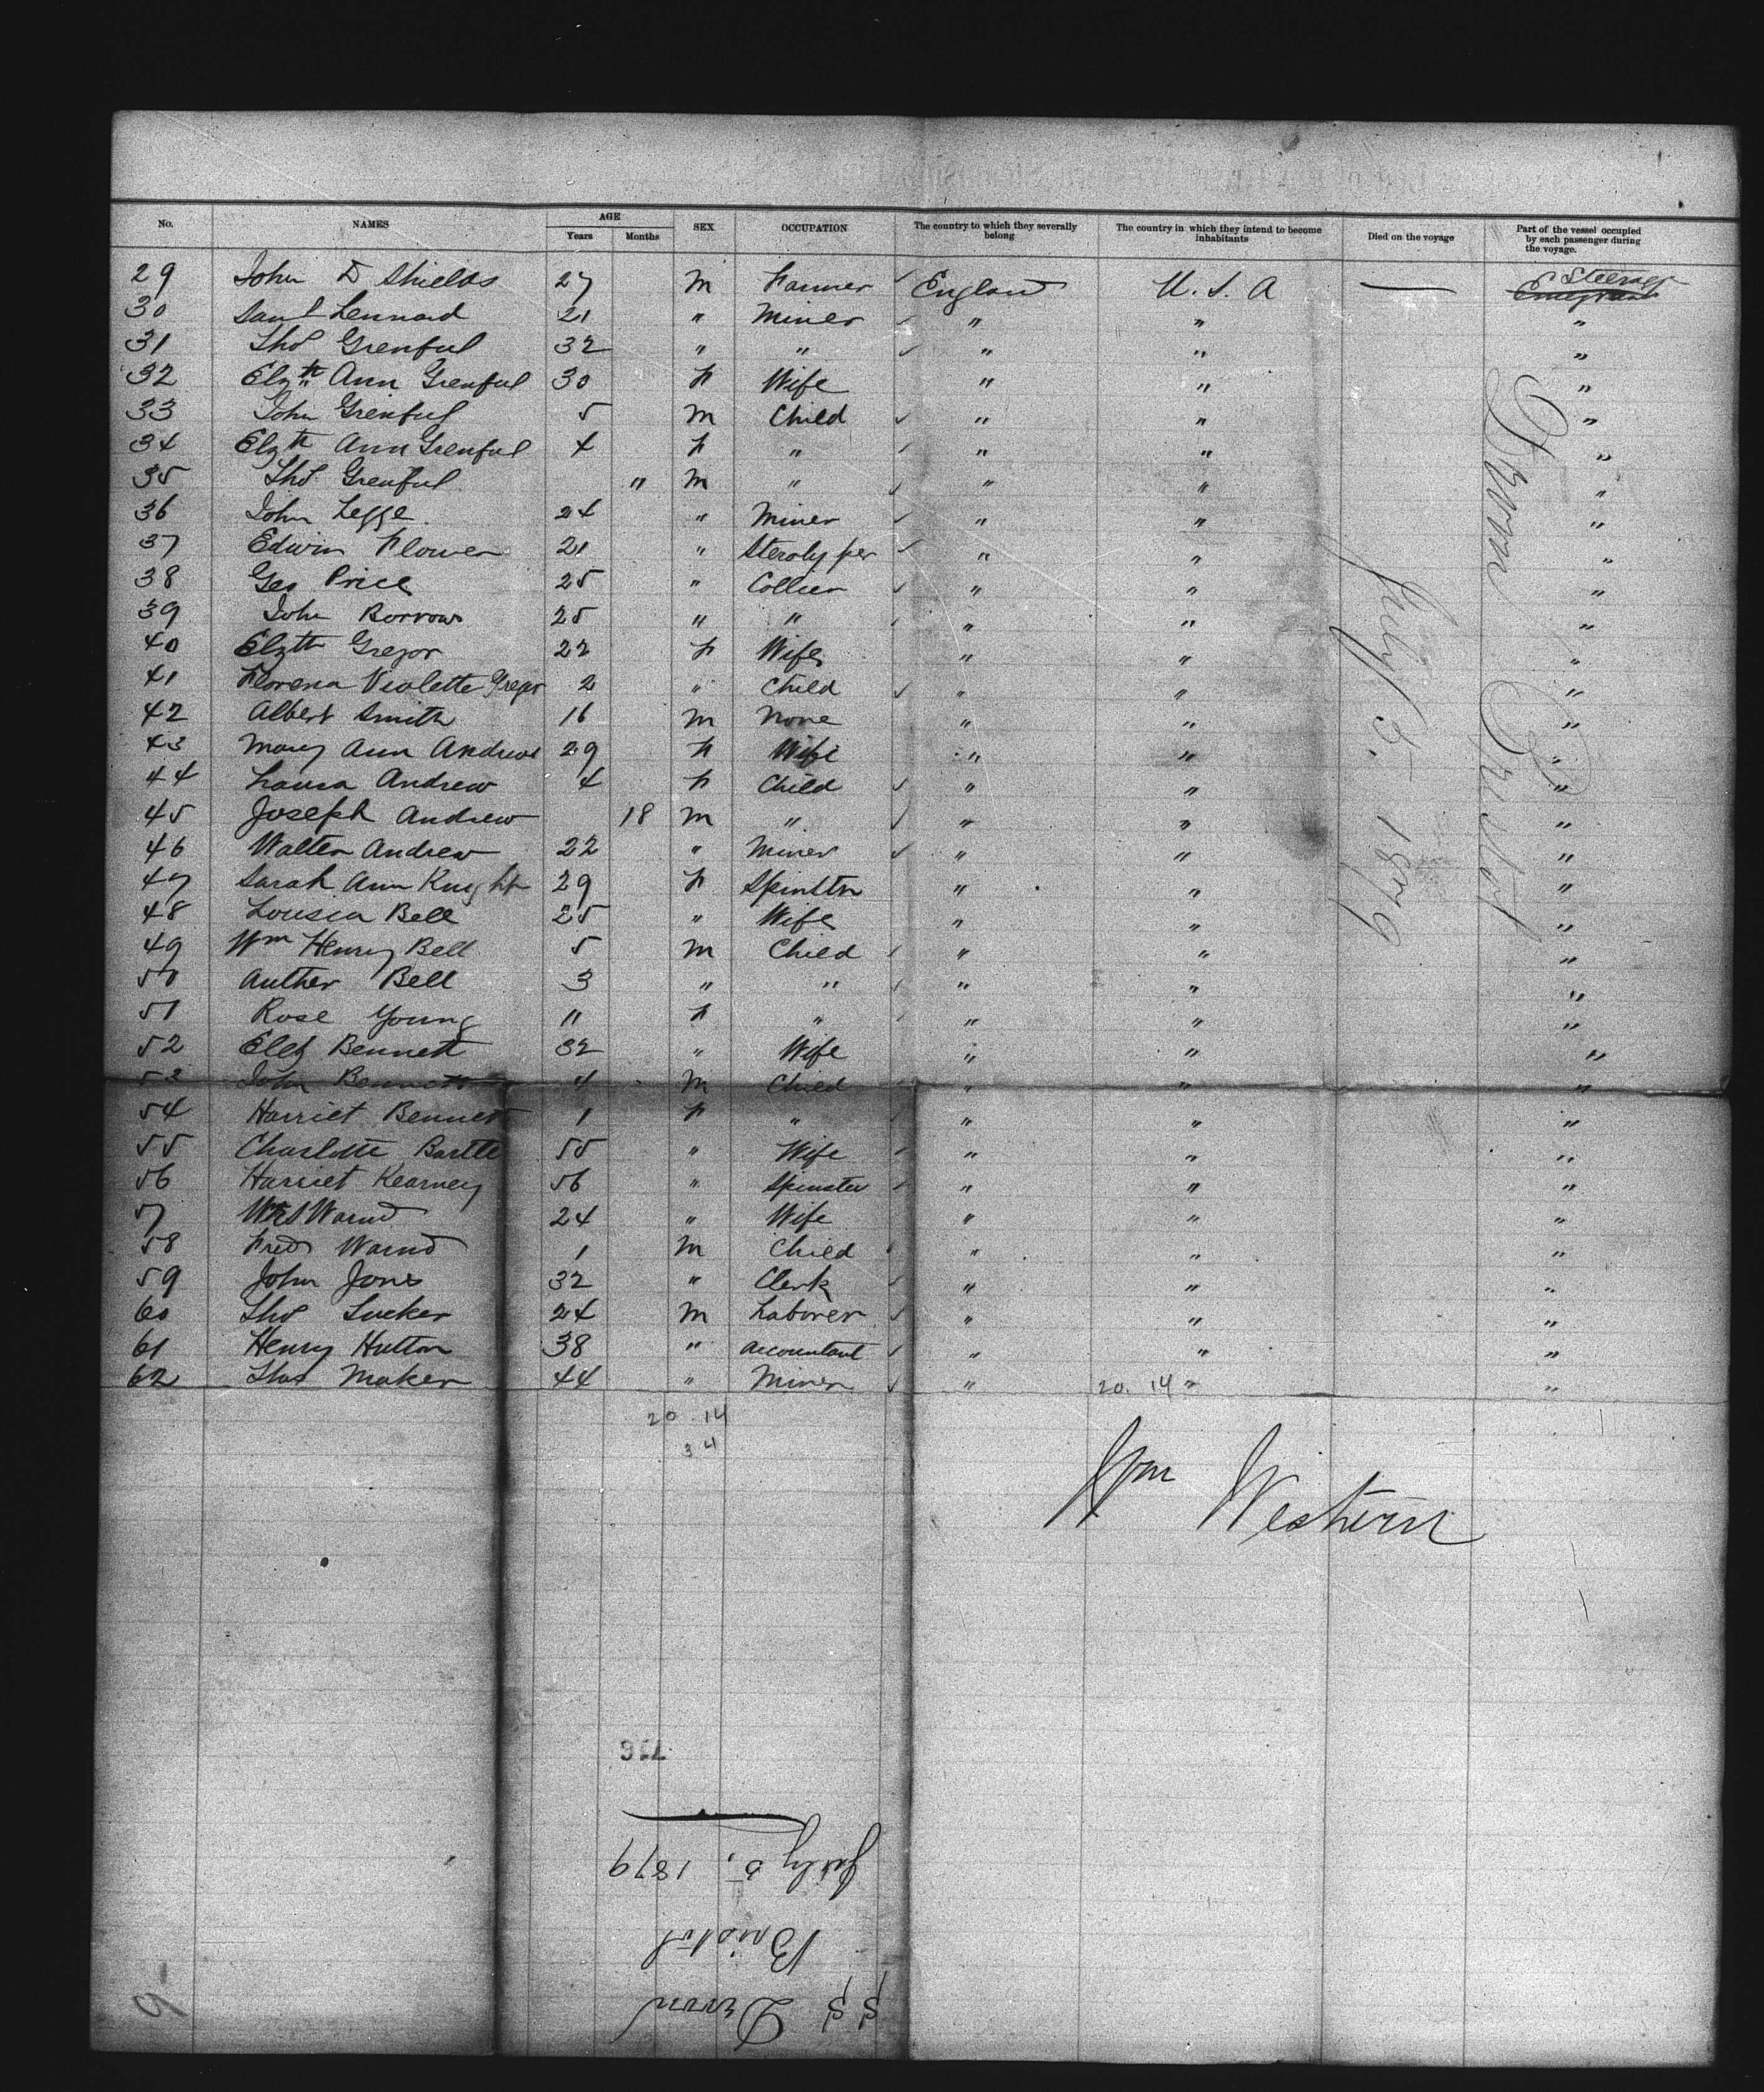 No. NAMES AGE Years Months SEX OCCUPATION The country to which they severally belong The country in which they intend to become inhabitants Died on the voyage Part of the vessel occupied by each passenger during the voyage.
29 John D Shields 27 M Farmer England U.S.A — Steerage
30 Saml Lennard 21 " Miner " " "
31 Thos Grenful 32 " " " " "
32 Elzth Ann Grenful 30 F Wife " " "
33 John Grenful 5 M Child " " "
34 Elzth Ann Grenful 4 F " " " "
35 Thos Grenful " M " " " "
36 John Legge 24 " Miner " " "
37 Edwin Flower 21 " Sterotyper " " "
38 Geo Price 25 " Collier " " "
39 John Borrows 25 " " " " "
40 Elzth Gregor 22 F Wife " " "
41 Florena Violette Gregor 2 " Child " " "
42 Albert Smith 16 M None " " "
43 Mary Ann Andrew 29 F Wife " " "
44 Laura Andrew 4 F Child " " "
45 Joseph Andrew 18 M " " " "
46 Walter Andrew 22 " Miner " " "
47 Sarah Ann Knight 29 F Spinstr " " "
48 Lousia Bell 25 " Wife " " "
49 Wm Henry Bell 5 M Child " " "
50 Auther Bell 3 " " " " "
51 Rose Young 11 F " " " "
52 Elez Bennett 32 " Wife " " "
53 John Bennett 4 M Child " " "
54 Harriet Bennett 1 F " " " "
55 Charlotte Bartle 55 " Wife " " "
56 Harriet Kearney 56 " Spinster " " "
57 Mrs Warnd 24 " Wife " " "
58 Fred Warnd 1 M Child " " "
59 John Jones 32 " Clerk " " "
60 Thos Tucker 24 M Laborer " " "
61 Henry Hutton 38 " Accountant " " "
62 Thos Maker 44 " Miner " " "
20. 14
20. 14
34
Devon Bristol
July 5. 1879
Wm Western
716
SS Devon
Bristol
July 5, 1879